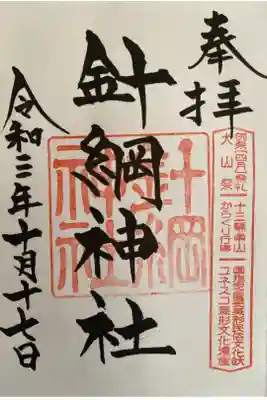 奉拝
犬山祭
十三輌車山
からくり行事
国指定重要無形民俗文化財
ユネスコ無形文化遺産
針綱神社
針綱
神社
令和三年十月十七日